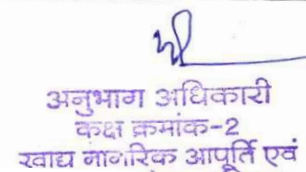 अनुभाग अधिकारी
कक्ष क्रमांक-2
खाद्य नागरिक आपूर्ति एवं